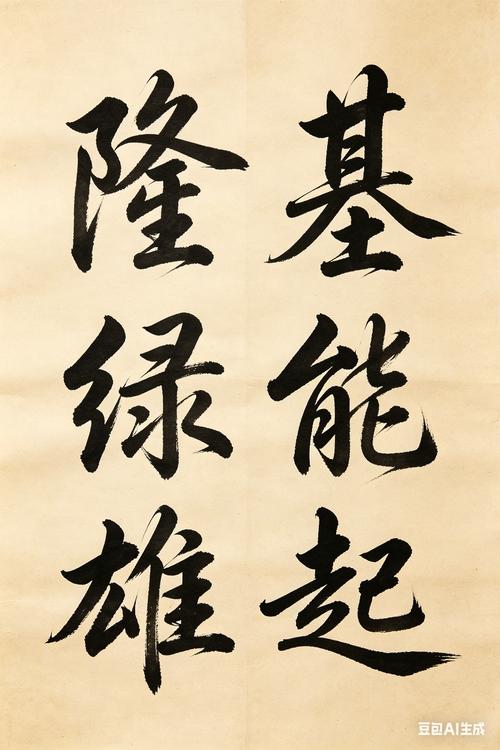 基能起
隆绿雄
豆包AI生成